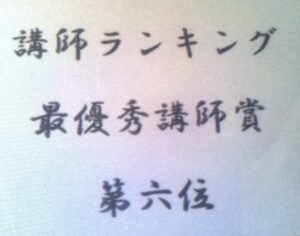 講師ランキング
最優秀講師賞
第六位